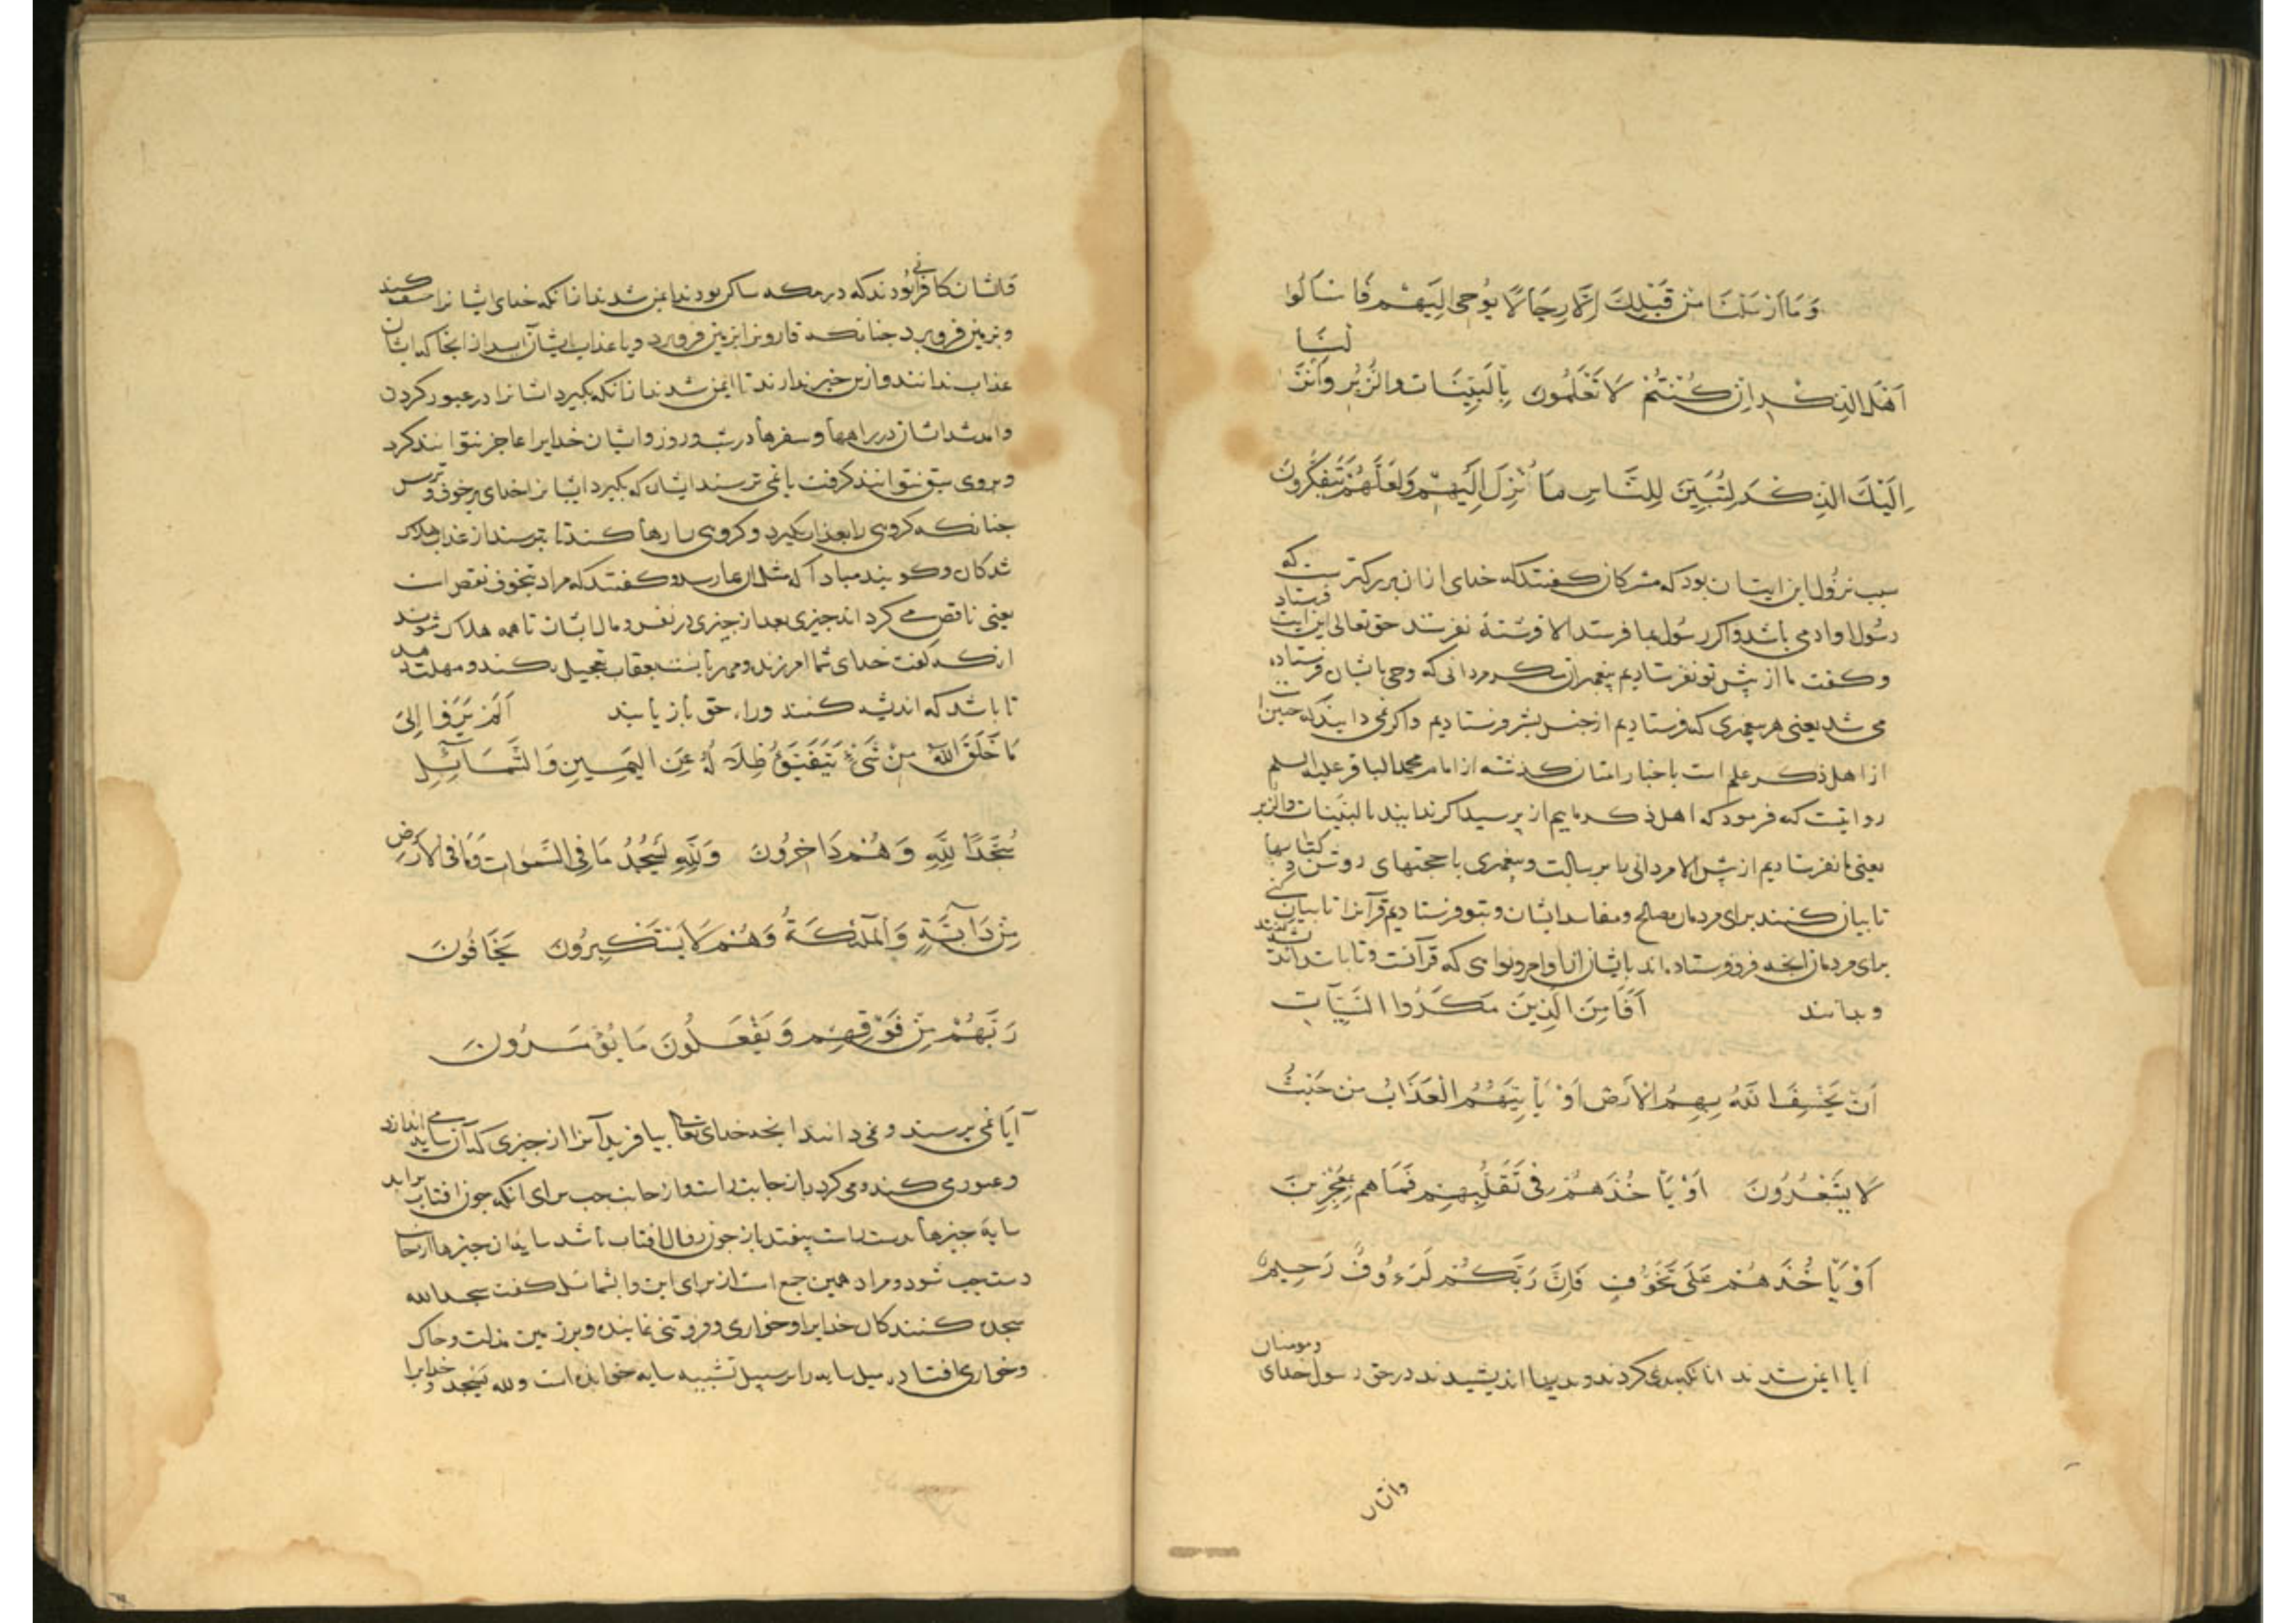 وَمَا اَرْسَلْنَا مِنْ قَبْلِكَ اِلَّا رِجَالًا يُوحٰى اِلَيْهِمْ فَاسْاَلُوا
اَهْلَ الذِّكْرِ اِنْ كُنْتُمْ لَا تَعْلَمُونَ بِالْبَيِّنَاتِ وَالزُّبُرِ وَاَنْزَلْنَا
اِلَيْكَ الذِّكْرَ لِتُبَيِّنَ لِلنَّاسِ مَا نُزِّلَ اِلَيْهِمْ وَلَعَلَّهُمْ يَتَفَكَّرُونَ
سبب نزول این ایت ان بود که مشرکان کفتند که خدای ازان بزرکترست که
رسول او ادمی باشد واکر رسول بما فرستد الا فرشتهٔ نفرستد حق تعالی این ایت فرستاد
وکفت ما از پیش تو نفرستادیم پیغمبران مکر مردانی که وحی بایشان فرستاده
می شد یعنی هر پیغمبری که فرستادیم از جنس بشر فرستادیم واکر نمی دانید
از اهل ذکر علم است باخبار امتان کذشته از امام محمد الباقر علیه السلم
روایتست که فرمود که اهل ذکر ماییم از ما پرسید اکر ندانید بالبینات والزبر
یعنی ما نفرستادیم از پیش الا مردانی را برسالت وپیغمبری با حجتهای روشن و کتابها
تا بیان کنند برای مردمان مصالح ومفاسد ایشان وبتو فرستادیم قرآنرا تا بیان کنی
برای مردمان انچه فرو فرستاده اند بایشان از اوامر ونواهی که قرآنست وتا باشد که اندیشه کنند
وبدانند اَفَاَمِنَ الَّذِينَ مَكَرُوا السَّيِّآتِ
اَنْ يَخْسِفَ اللّٰهُ بِهِمُ الْاَرْضَ اَوْ يَاْتِيَهُمُ الْعَذَابُ مِنْ حَيْثُ
لَا يَشْعُرُونَ اَوْ يَاْخُذَهُمْ فِى تَقَلُّبِهِمْ فَمَا هم بِمُعْجِزِينَ
اَوْ يَاْخُذَهُمْ عَلَى تَخَوُّفٍ فَاِنَّ رَبَّكُمْ لَرَءُوفٌ رَحِيمٌ
ایا ایمن شدند انانکه بدی کردند وبدیها اندیشیدند در حق رسول خدای ومومنان
وایشان
وایشان کافرانی بودند که در مکه ساکن بودند ایمن شدند ازانکه خدای ایشانرا خسف کند
وبزمین فرو برد چنانکه قارونرا بزمین فرو برد ویا عذاب بایشان آید از انجا که ایشان
عذاب ندانند وازین خبر ندارند تا ایمن شدند ازانکه بکیرد ایشانرا در عبور کردن
وامدشد ایشان در راهها وسفرها در شب وروز وایشان خدایرا عاجز نتوانند کرد
وبروی سبق نتوانند کرفت یا نمی ترسند ایشان که بکیرد ایشانرا خدای بر خوف وترس
چنانکه کروهی را بعذاب بکیرد وکروهی را رها کند تا بترسند از عذاب هلاک
شدکان وکویند مبادا که مثل ان بما رسد وکفتند که مراد بتخوف نقص است
یعنی ناقص می کرداند چیزی بعد از چیزی در نفس ومال ایشان تا همه هلاک شوند
انکه کفت خدای شما امرزنده ومهربانست بعقاب تعجیل نکند ومهلت دهد
تا باشد که اندیشه کنند وراه حق باز یابند اَلَمْ يَرَوْا اِلٰى
مَا خَلَقَ اللّٰهُ مِنْ شَىْءٍ يَتَفَيَّؤُ ظِلَالُهُ عَنِ الْيَمِينِ وَالشَّمَآئِلِ
سُجَّدًا لِلّٰهِ وَهُمْ دَاخِرُونَ وَلِلّٰهِ يَسْجُدُ مَا فِى السَّمٰوَاتِ وَمَا فِى الْاَرْضِ
مِنْ دَآبَّةٍ وَالْمَلٰٓئِكَةُ وَهُمْ لَا يَسْتَكْبِرُونَ يَخَافُونَ
رَبَّهُمْ مِنْ فَوْقِهِمْ وَيَفْعَلُونَ مَا يُؤْمَرُونَ
آیا نمی پرسند ونمی دانند انچه خدای تعالی بیافرید آنرا از چیزی که آن سایه می اندازد
وعبور می کند ومی کردد از جانب راست واز جانب چپ برای انکه چون افتاب براید
سایهٔ چیزها بدست راست بیفتد باز چون زوال افتاب باشد سایهٔ ان چیزها از جانب
دست چپ شود ومراد همین جمع است از برای این والشمائل کفت سجدا لله
سجده کنندکان خدایرا وخواری وفروتنی نماینده وبر زمین مذلت وخاک
وخواری افتاد میل سایه را بر سبیل تشبیه سایه خوانده است ولله یسجد وخدایرا